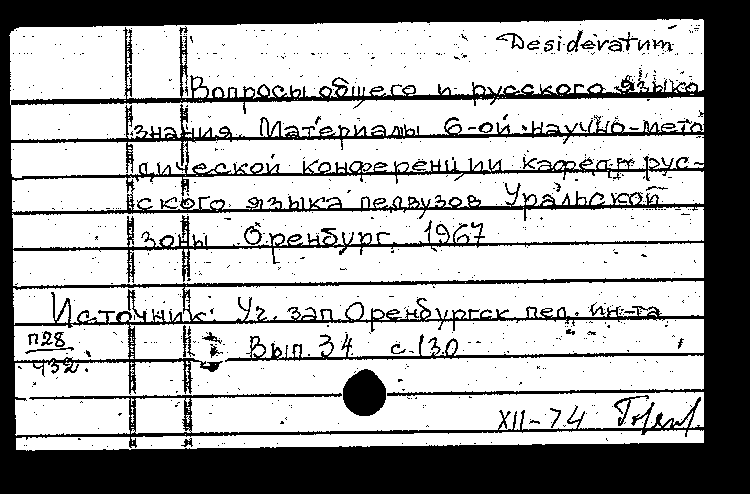 Desideratum
Вопросы общего и русского языко
знания. Материалы 6-ой научно-мето
дической конференции кафедр рус-
ского языка педвузов Уральской
зоны Оренбург, 1967
Источник: Уч. зап. Оренбургск. пед. ин-та
П28
432
Вып. 34 с. 130
XII-74